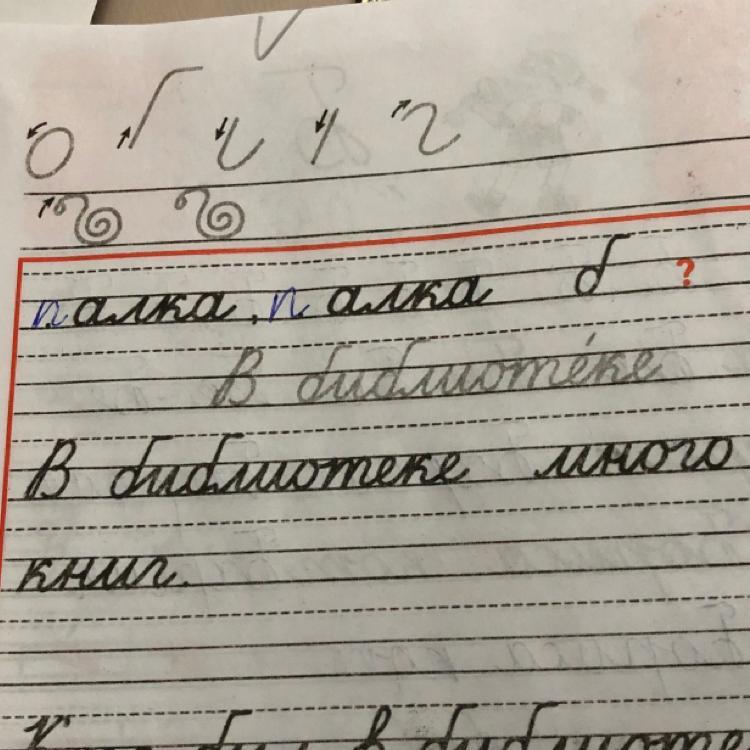 палка, палка б ?
В библиоте́ке
В библиотеке много
книг.
был в библиоте